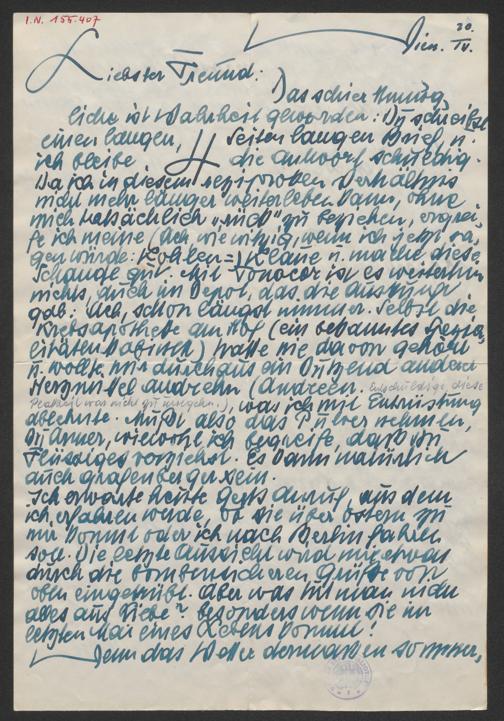 I.N. 155.407
Wien. 20. IV.
Liebster Freund:
Das schier Unmög
liche ist Wahrheit geworden: Du schreibst
einen langen, 4 Seiten langen Brief, u.
ich bleibe die Antwort schuldig.
Da ich in diesem Verhältnis
nicht mehr länger weiterleben kann, ohne
mich tatsächlich „rück" zu beziehen, ergrei-
fe ich meine (Ach wie witzig, wenn ich jetzt sa-
gen würde: Kohlen=) Klaue u. mache diese
Schande gut. Mit Tonocor ist es weiterhin
nichts, auch im Depot, das die Auskunft
gab: Ach, schon längst nimmer. Selbst die
Krebsapotheke am Hof (ein bekanntes Spezia-
litäten) hatte nie davon gehört
u. wollte mir durchaus ein Dutzend andere
Herzmittel andrehn (Andreen. Entschuldige, diese
war nicht zu umgehen.), was ich mit Entrüstung
ablehnte. Mußt also das Pulver nehmen,
Du Armer, wiewohl ich begreife, daß Du
Flüssiges vorziehst. Es kann natürlich
auch gräfenberger sein.
Ich erwarte heute Anruf, aus dem
ich erfahren werde, ob sie über Ostern zu
mir kommt oder ich nach Berlin fahren
soll. Die letzte Aussicht wird mir etwas
durch die bombensicheren Grüße von
oben eingetrübt. Aber was tut man nicht
alles aus Liebe? besonders wenn sie im
letzten Mai eines Lebens kommt!
Denn das Wetter dermaßen sommer,